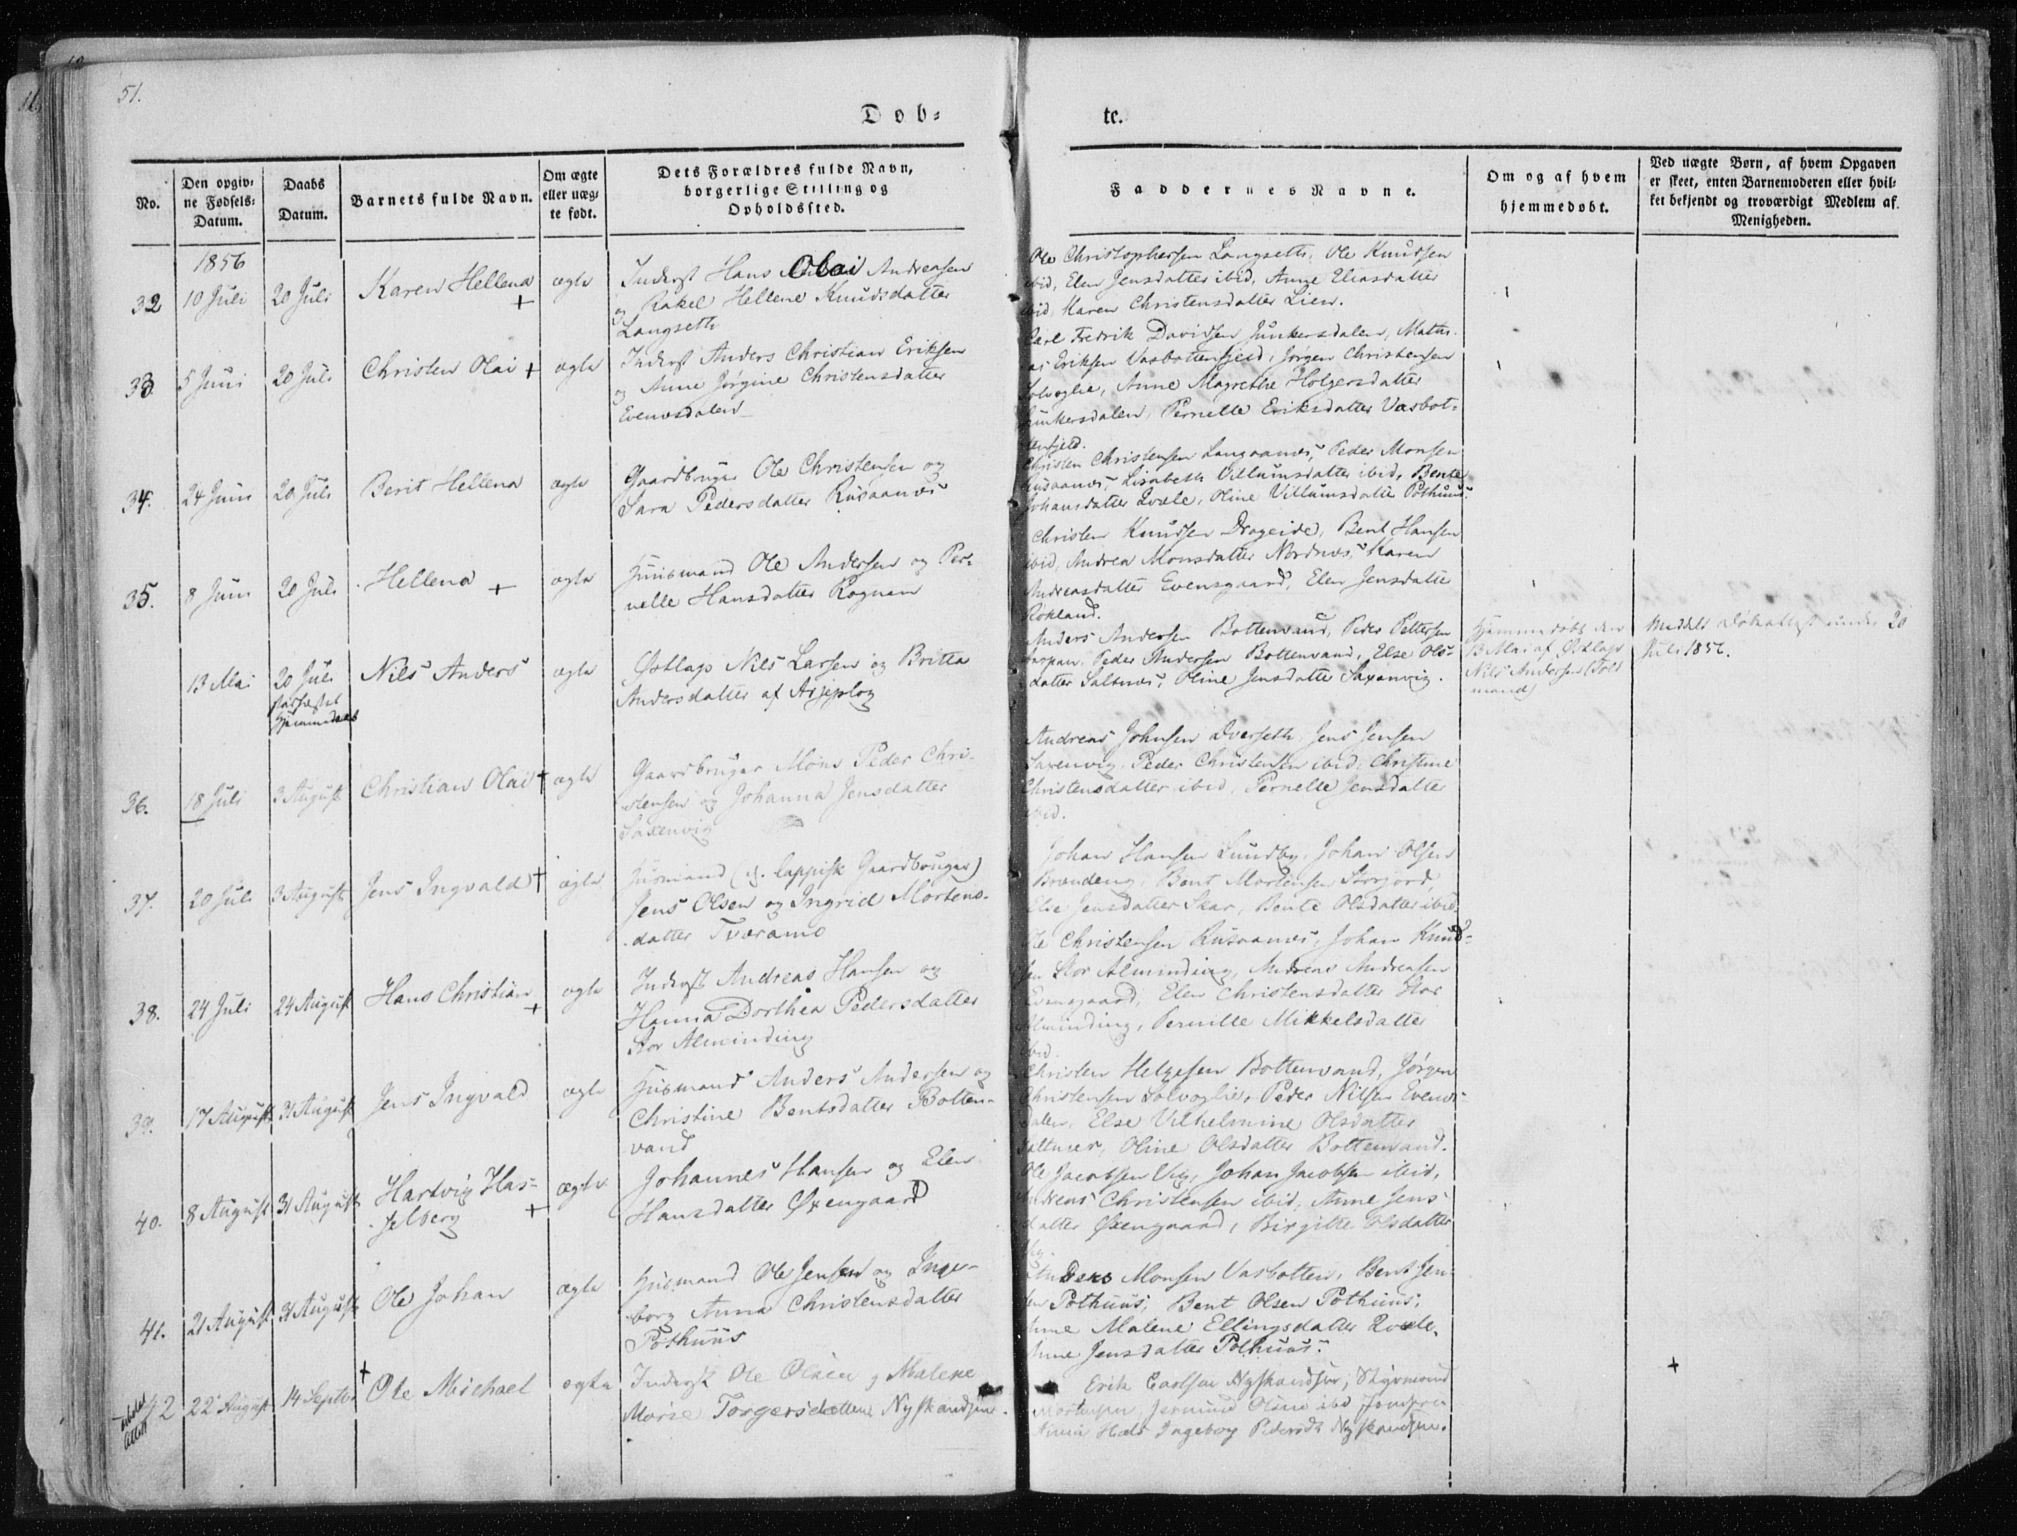 51.
Døb-
te.
No.
Den opgiv-
ne Fødsels-
Datum.
Daabs
Datum.
Barnets fulde Navn.
Om ægte
eller uæg-
te født.
Dets Forældres fulde Navn,
borgerlige Stilling og
Opholdssted.
Faddernes Navne.
Om og af hvem
hjemmedøbt.
Ved uægte Børn, af hvem Opgaven
er skeet, enten Barnemoderen eller hvil-
ket bekjendt og troværdigt Medlem af
Menigheden.
1856
32
10 Juli
20 Juli
Karen Hellena
+
ægte
Inderst Hans Olai Andreasen
og Rakel Hellene Knudsdatter
Langseth
Ole Christophersen Langseth, Ole Knudsen
ibid, Elen Jensdatter ibid, Anne Eliasdatter
ibid, Karen Christensdatter Lien.
33
5 Juni
20 Juli
Christen Olai +
ægte
Inderst Anders Christian Eriksen
og Anne Jørgine Christensdatter
Evenesdalen
Carl Fredrik Davidsen Junkersdalen, Mathi-
as Eriksen Vasbottenfjeld, Jørgen Christensen
Solvoglie, Anne Magrethe Holgersdatter
Junkersdalen, Pernelle Eriksdatter Vasbot-
tenfjeld.
34.
24 Juni
20 Juli
Berit Hellena
ægte
Gaardbruger Ole Christensen og
Sara Pedersdatter Rusaanæs
Christen Christensen Langaanæs, Peder Monsen
Rusaanæs, Lisabeth Villumsdatter ibid, Bente
Johansdatter Qvæle, Oline Villumsdatter Pothuus.
35.
8 Juni
20 Juli
Hellena +
ægte
Huusmand Ole Andersen og Per-
nelle Hansdatter Rognan
Christen Knudsen Drageide, Bent Hansen
ibid, Andrea Monsdatter Nordnæs, Karen
Andreasdatter Evensgaard, Elen Jensdatter
Rokland.
13 Mai
20 Juli
Nils Anders
ægte
Østlap Nils Larsen og Britta
Andersdatter af Arjeplog
Anders Andersen Bottenvand, Peder Pettersen
Peder Andersen Bottenvand, Else Ols-
datter Saltnæs, Oline Jensdatter Saxenvig.
Hjemmedøbt den
13 Mai af Østlap
Nils Andersen
Meddelt Døbeattest under 20
Juli 1856.
36.
18 Juli
3 August
Christian Olai +
ægte
Gaardbruger Mons Peder Chri-
stensen og Johanna Jensdatter
Saxenvig
Andreas Johnsen Dverseth, Jens Jensen
Saxenvig, Peder Christensen ibid, Christine
Christensdatter ibid, Pernelle Jensdatter
ibid.
37.
20 Juli
3 August
Jens Ingvald +
ægte
Huusmand ( lappisk Gaardbruger)
Jens Olsen og Ingrid Mortens-
datter Tværamo
Johan Hansen Lundby, Johan Olsen
Brændeng, Bent Mortensen Storjord,
Else Jensdatter Skar, Bente Olsdatter ibid
38.
24 Juli
24 August
Hans Christian
+
ægte
Inderst Andreas Hansen og
Hanna Dorthea Pedersdatter
Stor Alminding
Ole Christensen Rusaanæs, Johan Knud-
sen Stor Alminding, Andreas Andreasen
Evensgaard, Elen Christensdatter Stor
Alminding, Pernille Mikkelsdatter
ibid.
39.
17 August
31 August
Jens Ingvald
ægte
Huusmand Anders Andersen og
Christine Bentsdatter Botten-
vand
Christen Helgesen Bottenvand, Jørgen
Christensen Solvoglie, Peder Nilsen Evenes-
dalen, Else Vilhelmine Olsdatter
Oline Olsdatter Bottenvand.
40.
8 August
31 August
Hartvig Has-
selberg +
ægte
Johannes Hansen og Elen
Hansdatter Øxengaard
Ole Jacobsen Vig, Johan Jacobsen ibid,
Andreas Christensen ibid, Anne Jens-
datter Øxengaard, Birgitte Olsdatter
41.
21 August
31 August
Ole Johan
ægte
Huusmand Ole Jensen og Inge-
borg Anna Christensdatter
Pothuus
Anders Monsen Vasbotten, Bent Jen-
sen Pothuus, Bent Olsen Pothuus,
Anne Malene Ellingsdatter Qvæle,
Anne Jensdatter Pothuus.
42
22 August
14 Septbr
+
Ole Michael
ægte
Inderst Ole Olsen og Malene
Marie Torgersdatter Nyskandsen.
Erik Carlsen Nyskandsen,
Mortensen, Olsen ibid Jomfru
Anna Ingeborg Pedersdt Nyskandsen.
+